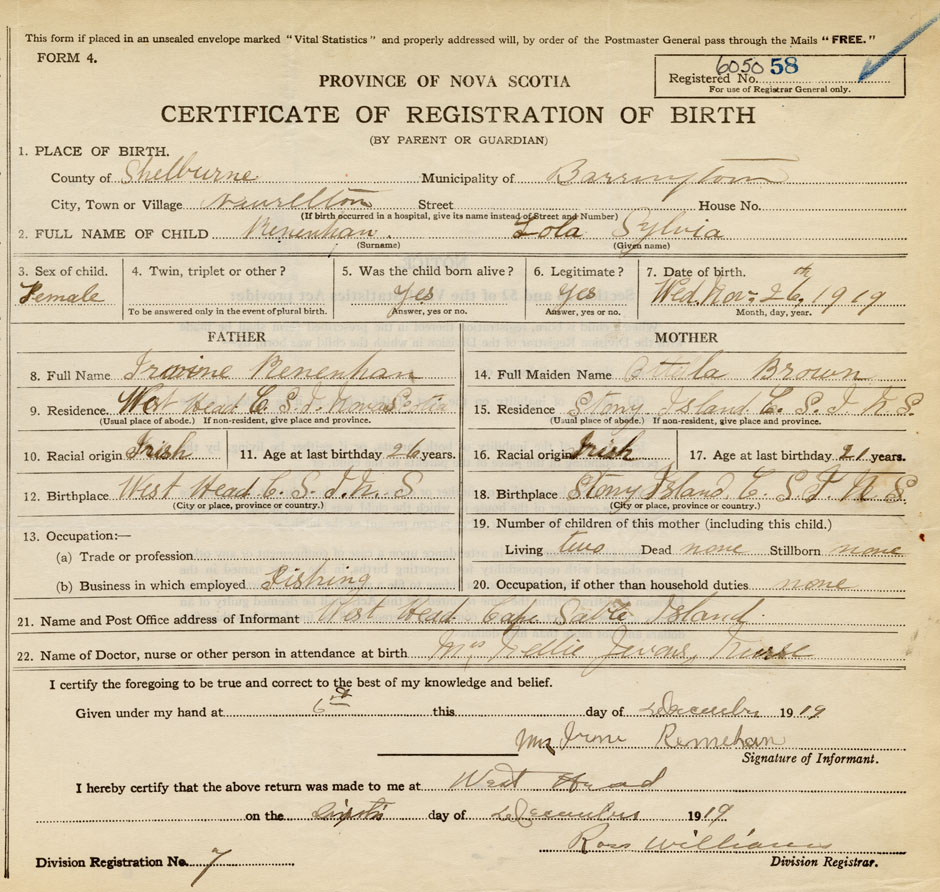 This form if placed in an unsealed envelope marked "Vital Statistics" and properly addressed will, by order of the Postmaster General pass through the Mails "FREE."
FORM 4.
6050 58
Registered No.
For use of Registrar General only.
PROVINCE OF NOVA SCOTIA
CERTIFICATE OF REGISTRATION OF BIRTH
(BY PARENT OR GUARDIAN)
1. PLACE OF BIRTH.
County of Shelburne Municipality of Barrington
City, Town or Village Street House No.
(If birth occurred in a hospital, give its name instead of Street and Number)
2. FULL NAME OF CHILD Kenenhan. Lola Sylvia
(Surname) (Given name)
3. Sex of child. 4. Twin, triplet or other? 5. Was the child born alive? 6. Legitimate? 7. Date of birth.
Female Yes Yes Wed. Nov. 26th 1919
To be answered only in the event of plural birth. Answer, yes or no. Answer, yes or no. Month, day, year.
FATHER
8. Full Name Kenenhan
9. Residence. West Head C. S. I. Nova Scotia
(Usual place of abode.) If non-resident, give place and province.
10. Racial origin Irish 11. Age at last birthday 26 years.
12. Birthplace West Head C. S. I. N. S
(City or place, province or country.)
13. Occupation:—
(a) Trade or profession
(b) Business in which employed Fishing
MOTHER
14. Full Maiden Name Brown
15. Residence Stony Island C. S. I. N. S.
(Usual place of abode.) If non-resident, give place and province.
16. Racial origin Irish 17. Age at last birthday 21 years.
18. Birthplace Stony Island C. S. I N. S.
(City or place, province or country.)
19. Number of children of this mother (including this child.)
Living two Dead none Stillborn none
20. Occupation, if other than household duties none
21. Name and Post Office address of Informant West Head Cape Sable Island
22. Name of Doctor, nurse or other person in attendance at birth Mrs Nellie Nurse
I certify the foregoing to be true and correct to the best of my knowledge and belief.
Given under my hand at 6th this day of December 1919
Mrs
Signature of Informant.
I hereby certify that the above return was made to me at West Head
on the day of December 1919
Ross Williams
Division Registration No. 7 Division Registrar.